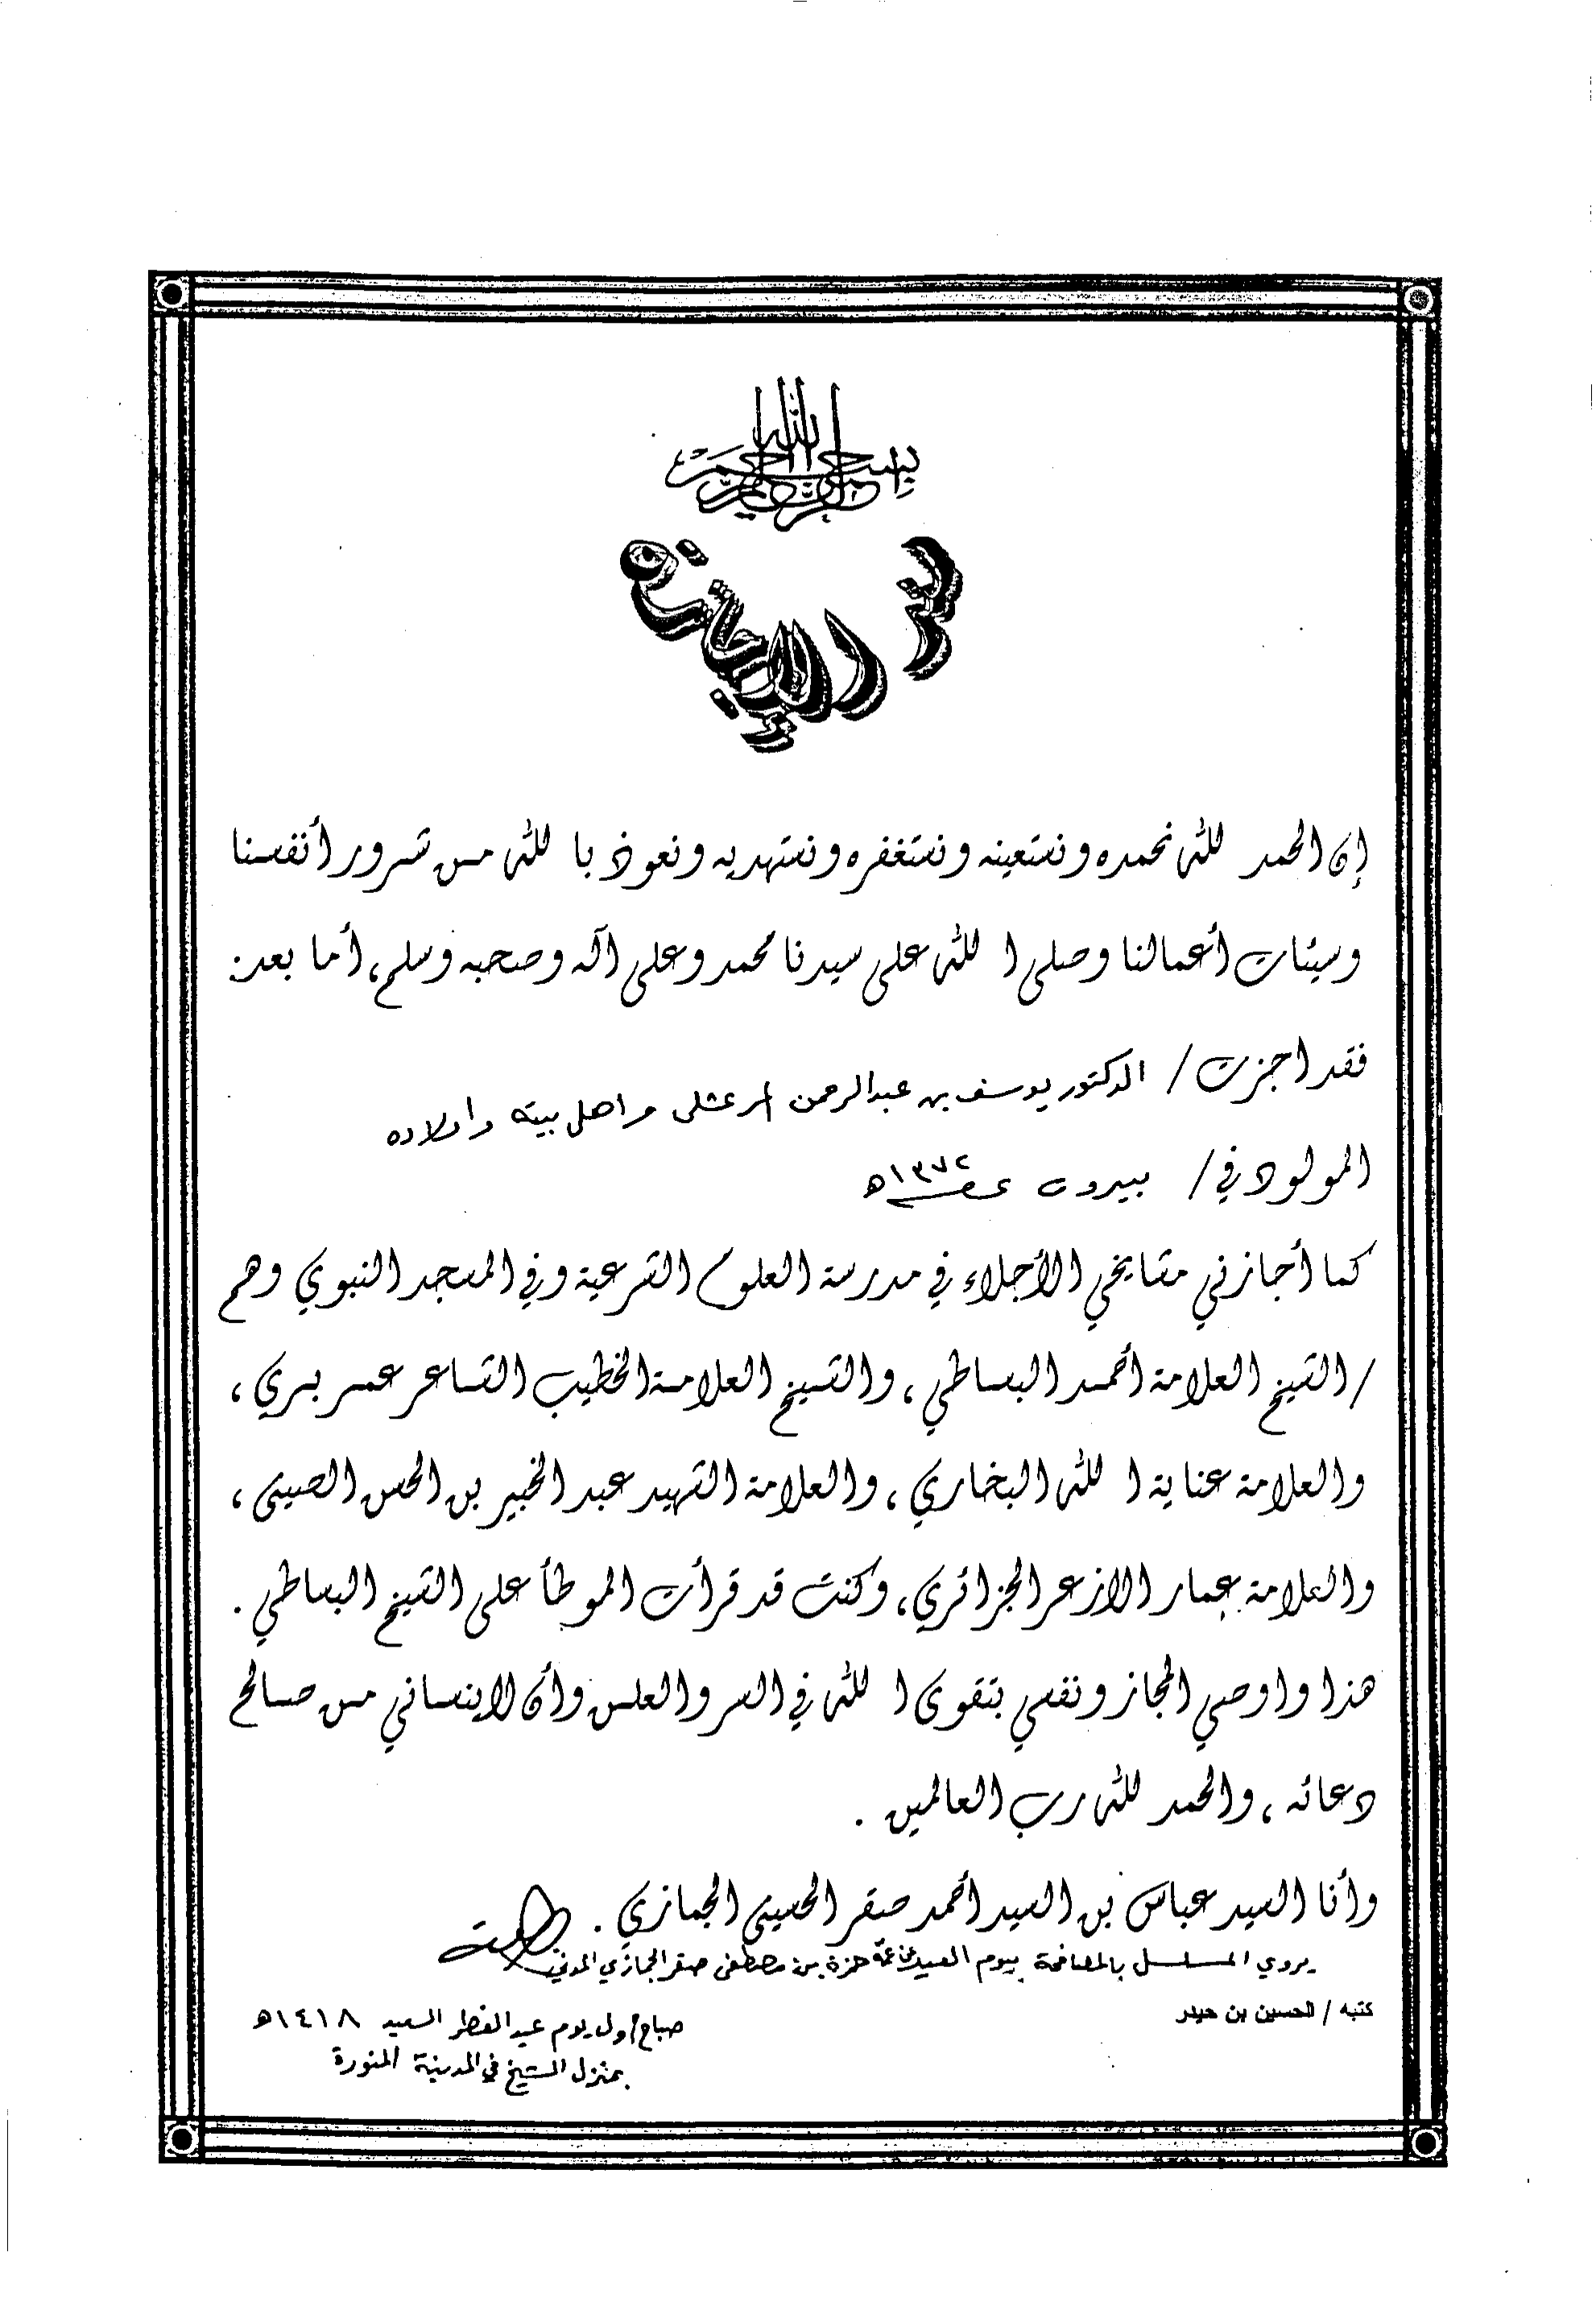 بسم الله الرحمن الرحيم
نص الإجازة
إن الحمد لله نحمده ونستعينه ونستغفره ونستهديه ونعوذ بالله من شرور أنفسنا
وسيئات أعمالنا وصلى الله على سيدنا محمد وعلى آله وصحبه وسلم، أما بعد:
فقد اجزت / الدكتور يوسف بن عبدالرحمن المرعشلي و اهل بيته و اولاده
المولود في / بيروت ١٣٧٢ه
كما أجازني مشايخي الأجلاء في مدرسة العلوم الشرعية وفي المسجد النبوي وهم
/ الشيخ العلامة أحمد البساطي ، والشيخ العلامة الخطيب الشاعر عمر بري ،
والعلامة عناية الله البخاري ، والعلامة الشهيد عبد الخبير بن الحسن الصيني ،
والعلامة عمار الازعر الجزائري، وكنت قد قرأت الموطأ على الشيخ البساطي .
هذا واوصي المجاز ونفسي بتقوى الله في السر والعلن وأن لاينساني من صالح
دعائه ، والحمد لله رب العالمين .
وأنا السيد عباس بن السيد أحمد صقر الحسيني الجمازي .
يروي المسلسل بالمصافحة بيوم العيد عن عمه حمزة بن مصطفى صقر الجمازي المدني
كتبه / الحسين بن حيدر
صباح أول يوم عيد الفطر السعيد ١٤١٨ه
بمنزل الشيخ في المدينة المنورة